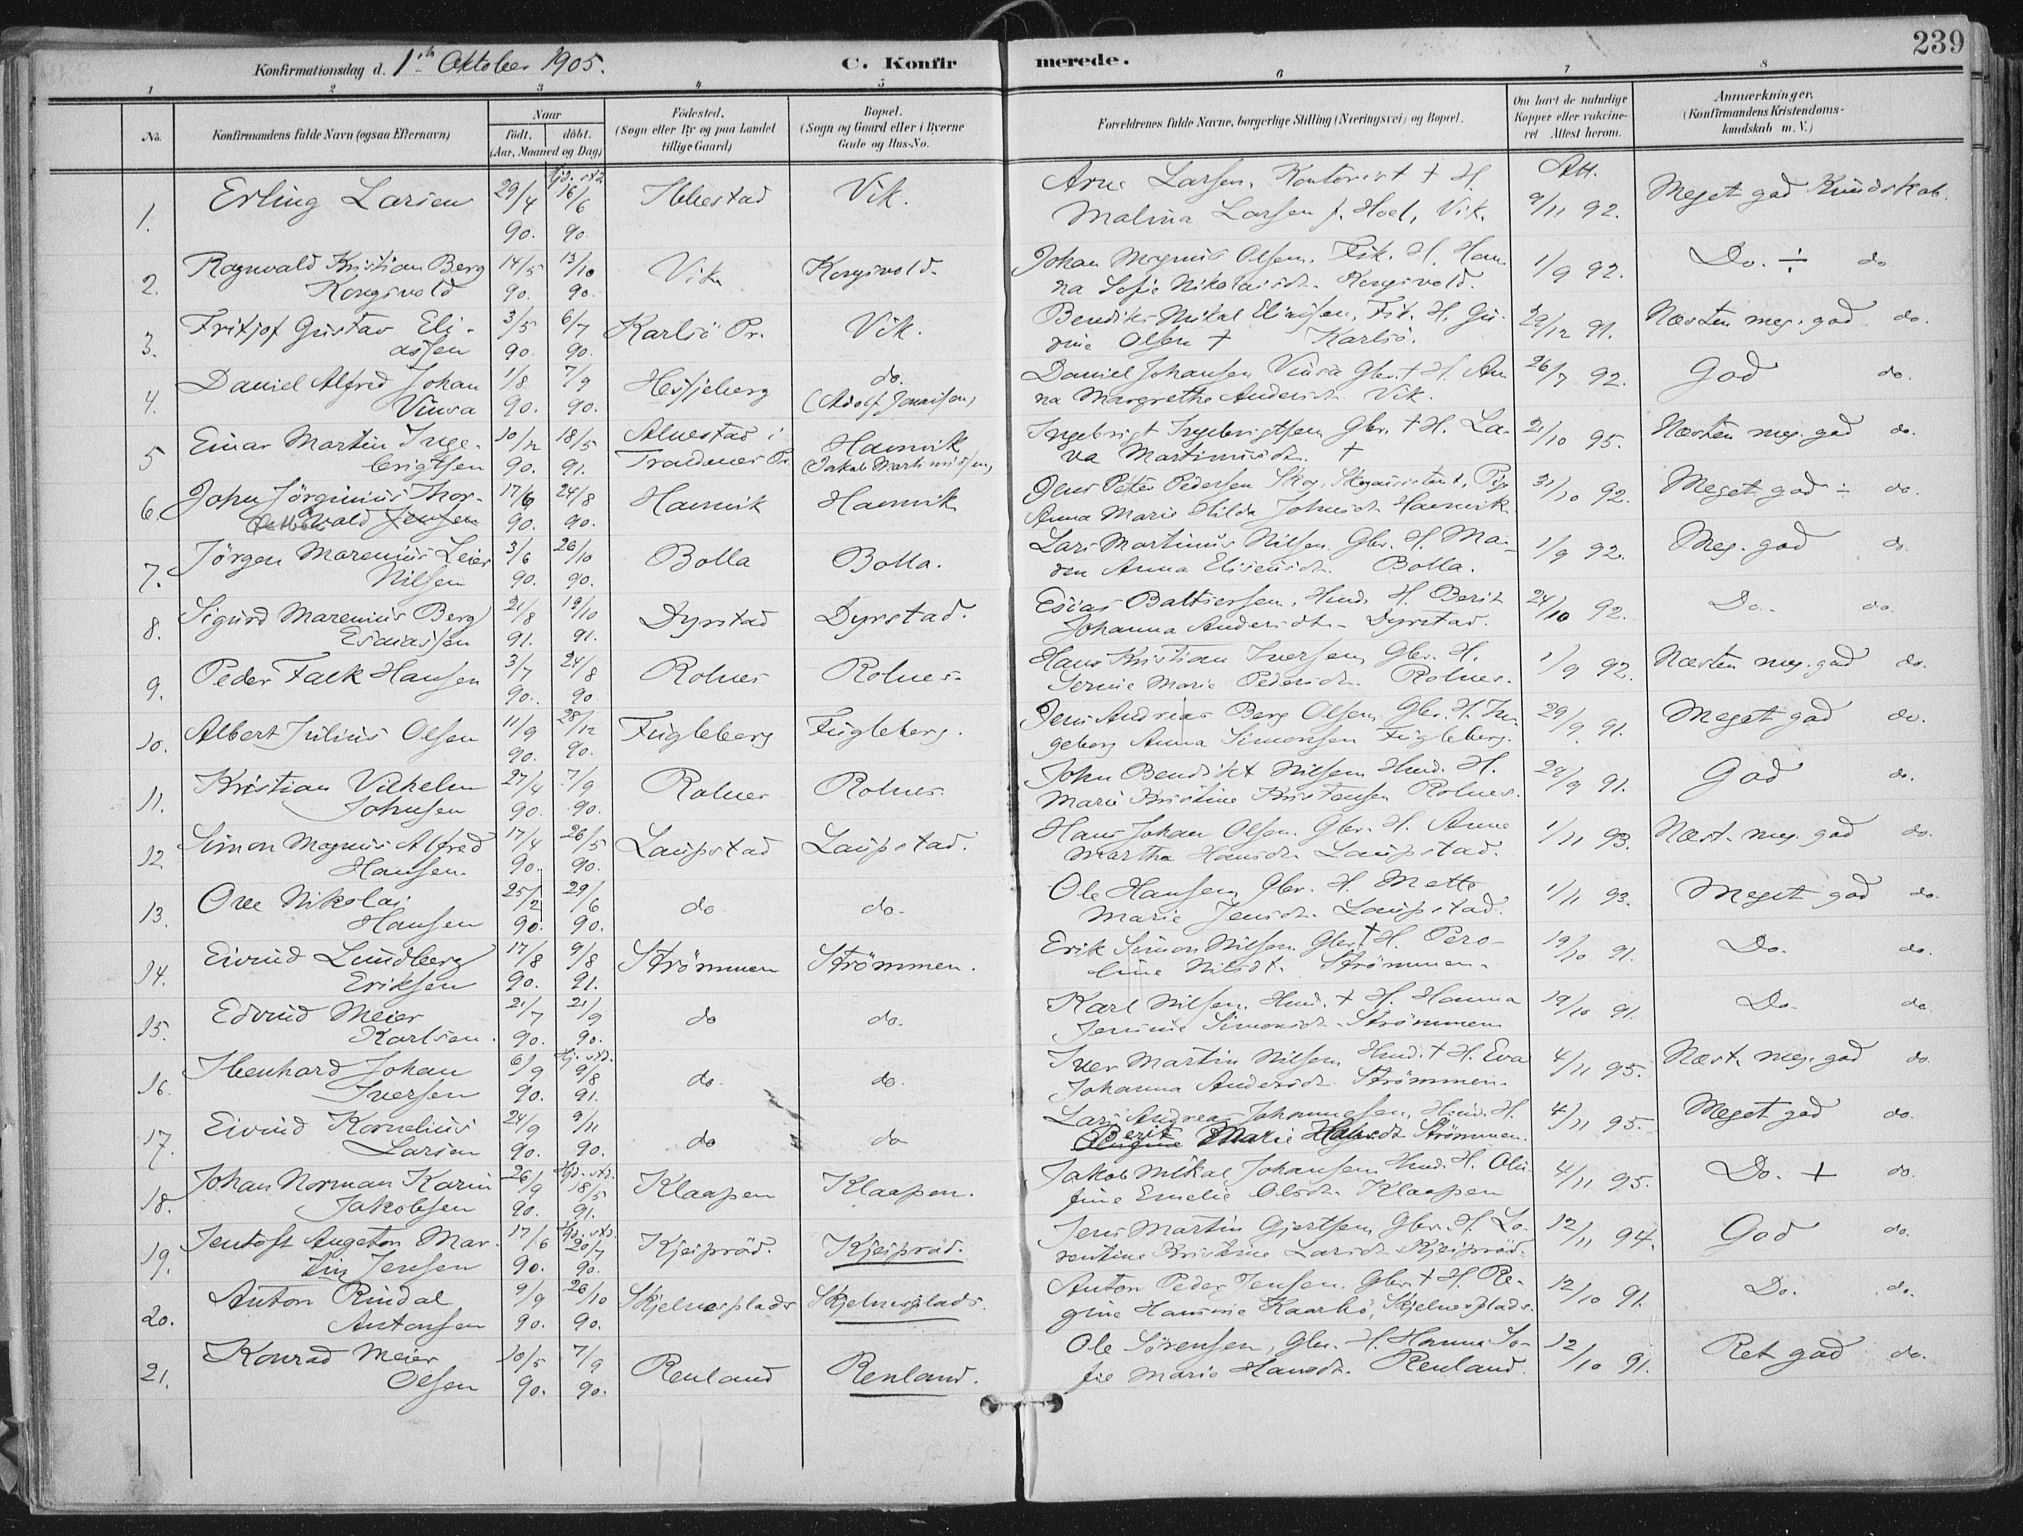 239
Konfirmationsdag d. 1ste Oktober 1905.
C. Konfirmerede.
1 2 3 4 5 6 7 8
No.
Konfirmandens fulde Navn (ogsaa Efternavn)
Naar
født, døbt.
(Aar, Maaned og Dag)
Fødested.
(Sogn eller By og paa Landet
tillige Gaard)
Bopæl.
(Sogn og Gaard eller i Byerne
Gade og Hus-No.
Forældrenes fulde Navne, borgerlige Stilling (Næringsvei) og Bopæl.
Om havt de naturlige
Kopper eller vaccine-
ret Attest herom.
Anmærkninger.
(Konfirmandens Kristendoms-
kundskab m. V.)
1. Erling Larsen 29/4 90. Hjd. st. 16/6 90. Ibbestad Vik. Arne Larsen, Kontorist + H.
Malina Larsen f. Hoel, Vik. Att. 9/11 92. Meget god Kundskab.
2. Ragnvald Kristian Berg
Kongsvold 14/5 90. 13/10 90. Vik Kongsvold. Johan Magnus Olsen, Fisk. H. Han-
na Sofie Nikolaisdt. Kongsvold. 1/9 92. Do. ÷ do
3. Fritjof Gustav Eli-
assen 3/5 90. 6/7 90. Karlsö Pr. Vik. Bendiks Mikal Eliassen, Fisk. H. Gu-
rine Olsen + Karlsö. 29/12 91. Næsten meg. god do.
4. Daniel Alfred Johan
Vinsa 1/8 90. 7/9 90. Hessjeberg do.
(Adolf Jonassen) Daniel Johansen Vinsa Gbr. + H. An-
na Margrethe Andersdt. Vik. 26/7 92. God do.
5 Einar Martin Inge-
brigtsen 10/12 90. 18/5 91. Alvestad i
Tranenes Pr. Hamvik
(Jakob Martinussen) Ingebrigt Ingebrigtsen Gbr. + H. La-
va Martinusdt. + 21/10 95. Næsten meg. god do.
6. John Jörginius Thor-
vald Jensen 17/6 90. 24/8 90. Hamvik Hamvik Jens Petter Pedersen Skog, Skogassistent, Pig
Anna Marie Hilda Johnsdt. Hamvik. 31/10 92. Meget god ÷ do.
7. Jörgen Marenius Leier
Nilsen 3/6 90. 26/10 90. Bolla Bolla. Lars Martinus Nilsen Gbr. H. Ma-
ren Anna Eliseusdt. Bolla. 1/9 92. Meg. god do.
8. Sigurd Marenius Berg
Esaiassen 21/8 91. 19/10 91. Dyrstad Dyrstad. Esias Baltsersen, Hmd. H. Berit
Johanna Andersdt. Dyrstad. 24/10 92. Do. do.
9. Peder Falk Hansen 3/7 90. 24/8 90. Rolnes Rolnes. Hans Kristian Iversen Gbr. H.
Serine Marie Pedersdt. Rolnes. 1/9 92. Næsten meg. god do.
10. Albert Julius Olsen 11/9 90. 28/12 90. Fugleberg Fugleberg. Jens Andreas Berg Olsen Gbr. H. In-
geborg Anna Simonsen Fugleberg. 29/9 91. Meget god do.
11. Kristian Vilhelm
Johnsen 27/4 90. 7/9 90. Rolnes Rolnes John Bendikt Nilsen Hmd. H.
Marie Kristine Kristensen Rolnes. 28/9 91. God do.
12. Simon Magnus Alfred
Hansen 17/4 90. 26/5 90. Laupstad Laupstad. Hans Johan Olsen Gbr. H. Anne
Martha Hansdt. Laupstad. 1/11 93. Næst. meg. god do.
13. Ove Nikolai
Hansen 25/2 90. 29/6 90. do do. Ole Hansen Gbr. H. Mette
Marie Jensdt. Laupstad. 1/11 93. Meget god do.
14. Eivind Lundberg
Eriksen 17/8 90. 9/8 91. Strömmen Strömmen. Erik Simon Nilsen Gbr. + H. Pero-
line Nilsdt. Strömmen. 19/10 91. Do. do.
15. Edvind Meier
Karlsen. 21/7 90. 21/9 90. do do. Karl Nilsen Hmd. + H. Hanna
Jensine Simonsdt. Strömmen 19/10 91. Do. do
16. Ibenhard Johan
Iversen 6/9 90. Hj. st. 9/8 91. do. do. Iver Martin Nilsen Hmd. + H. Eva
Johanna Andersdt. Strömmen. 4/11 95. Næst. meg. god do.
17. Eivind Kornelius
Larsen 24/9 90. 9/11 90. do do Lars Andreas Johannesen, Hmd. H.
Berit Marie Strömmen. 4/11 95. Meget god do.
18. Johan Norman Karin
Jakobsen 26/9 90. Hjd. st. 18/5 91. Klaapen Klaapen. Jakob Mikal Johansen Hmd. H. Oli-
fine Emelie Olsdt. Klaapen 4/11 95. Do. + do.
19. Jentoft Angeton Mar-
tin Jensen 17/6 90. Hjd. st. 20/7 90. Kjeipröd. Kjeipröd. Jens Martin Gjertsen Gbr. H. Lo-
rentine Kristine Larsdt. Kjeipröd. 12/11 94. God do.
20. Anton Rindal
Antonsen 9/9 90. 26/10 90. Skjelnesplads Skjelnesplads. Anton Peder Jensen Gbr. + H. Re-
gine Hansine Kaarbö, Skjelnesplads. 12/10 91. Do. do.
21. Konrad Meier
Olsen 10/5 90. 7/9 90. Renland Renland. Ole Sörensen, Gbr. H. Hanna So-
fie Marie Hansdt. Renland. 12/10 91. Ret god do.